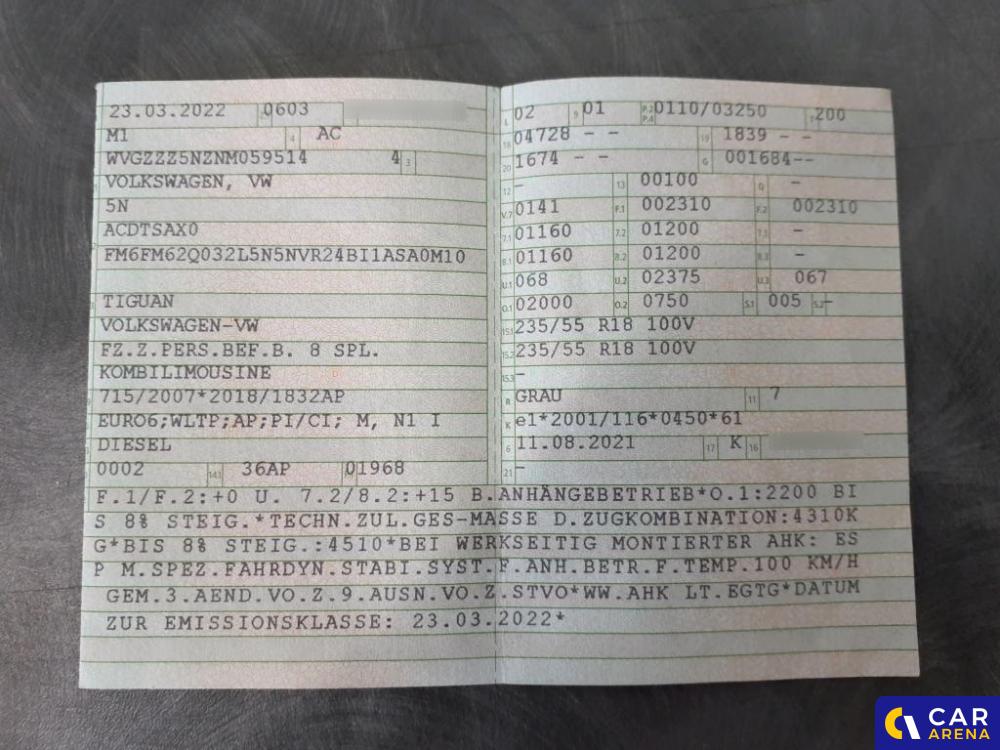 23.03.2022 0603
M1 4 AC
WVGZZZ5NZNM059514 4 3
VOLKSWAGEN, VW
5N
ACDTSAX0
FM6FM62Q032L5N5NVR24BI1ASA0M10
TIGUAN
VOLKSWAGEN-VW
FZ.Z.PERS.BEF.B. 8 SPL.
KOMBILIMOUSINE
715/2007*2018/1832AP
EURO6;WLTP;AP;PI/CI; M, N1 I
DIESEL
0002 14.1 36AP 01968
L 02 9 01 P.2 P.4 0110/03250 T 200
18 04728 - - 19 1839 - -
20 1674 - - G 001684--
12 - 13 00100 Q -
V.7 0141 F.1 002310 F.2 002310
7.1 01160 7.2 01200 7.3 -
8.1 01160 8.2 01200 8.3 -
U.1 068 U.2 02375 U.3 067
O.1 02000 O.2 0750 S.1 005 S.2 -
15.1 235/55 R18 100V
15.2 235/55 R18 100V
15.3 -
R GRAU 11 7
K e1*2001/116*0450*61
6 11.08.2021 17 K 16
21 -
F.1/F.2:+0 U. 7.2/8.2:+15 B.ANHÄNGEBETRIEB*O.1:2200 BI
S 8% STEIG.*TECHN.ZUL.GES-MASSE D.ZUGKOMBINATION:4310K
G*BIS 8% STEIG.:4510*BEI WERKSEITIG MONTIERTER AHK: ES
P M.SPEZ.FAHRDYN.STABI.SYST.F.ANH.BETR.F.TEMP.100 KM/H
GEM.3.AEND.VO.Z.9.AUSN.VO.Z.STVO*WW.AHK LT.EGTG*DATUM
ZUR EMISSIONSKLASSE: 23.03.2022*
CAR
ARENA